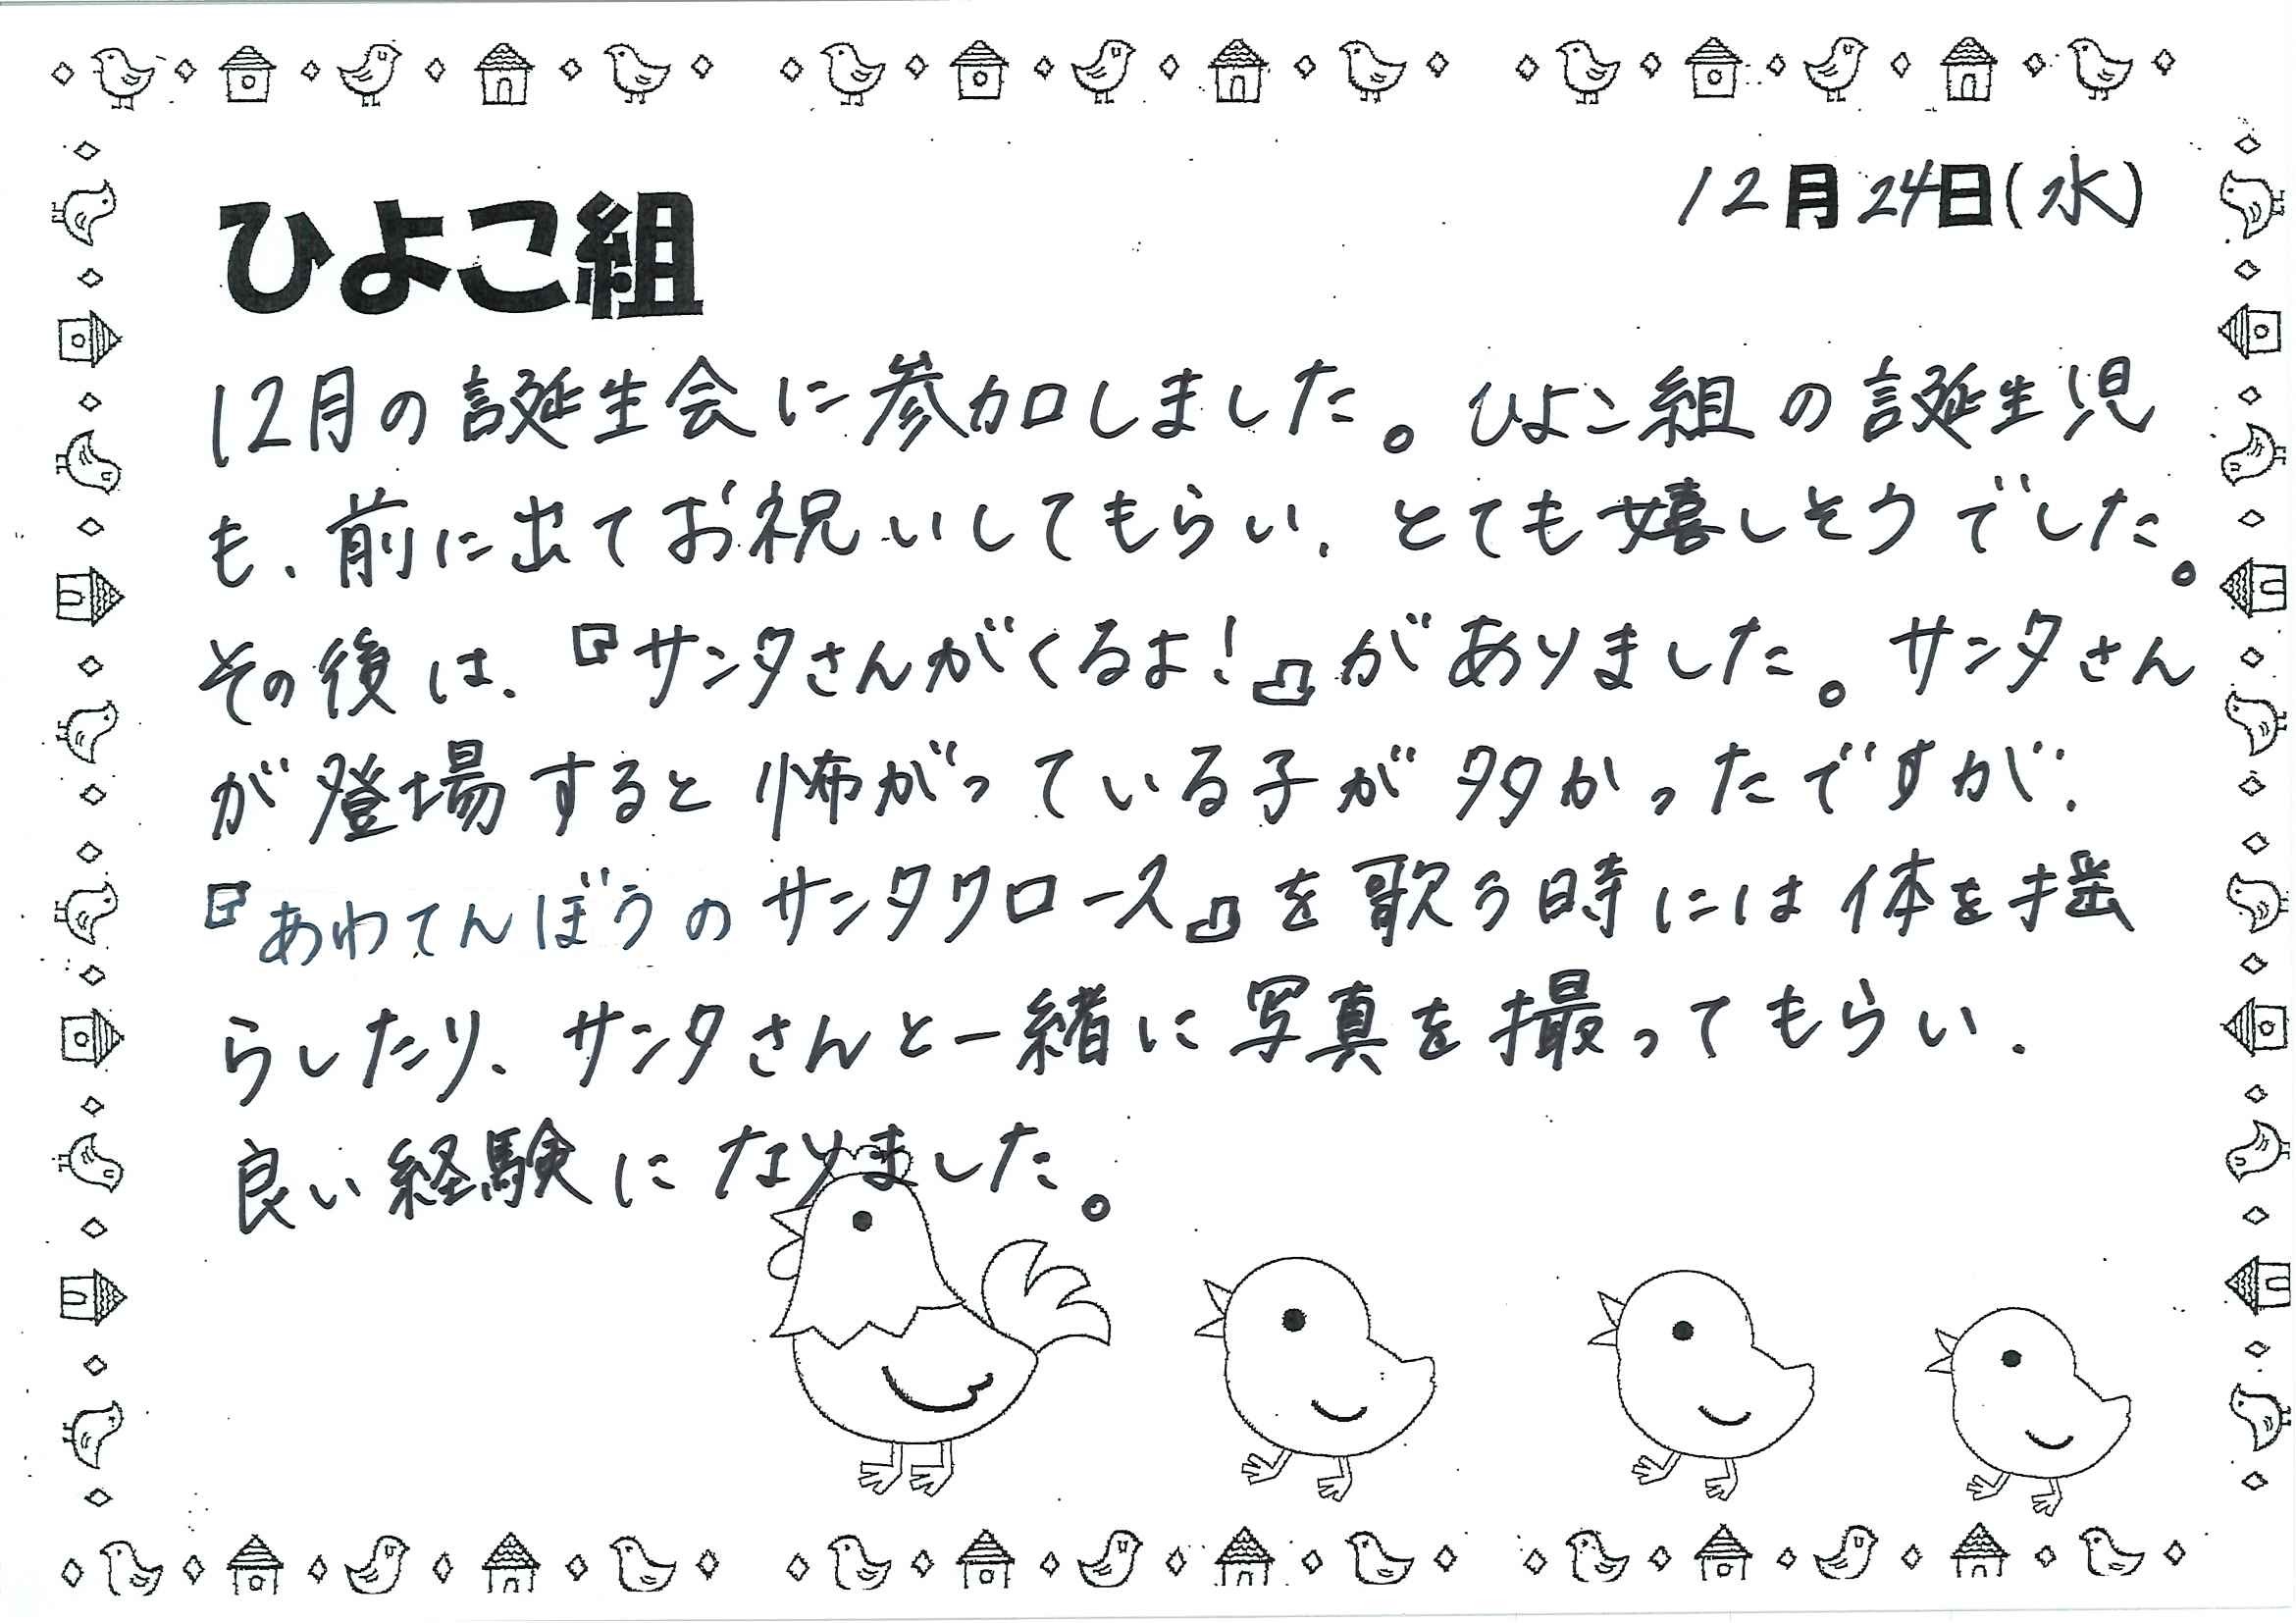 12月24日(水)
ひよこ組
12月の誕生会に参加しました。ひよこ組の誕生児
も、前に出てお祝いしてもらい、とても嬉しそうでした。
その後は、『サンタさんがくるよ!』がありました。サンタさん
が登場すると怖がっている子が多かったですが、
『あわてんぼうのサンタクロース』を歌う時には体を揺
らしたり、サンタさんと一緒に写真を撮ってもらい、
良い経験になりました。